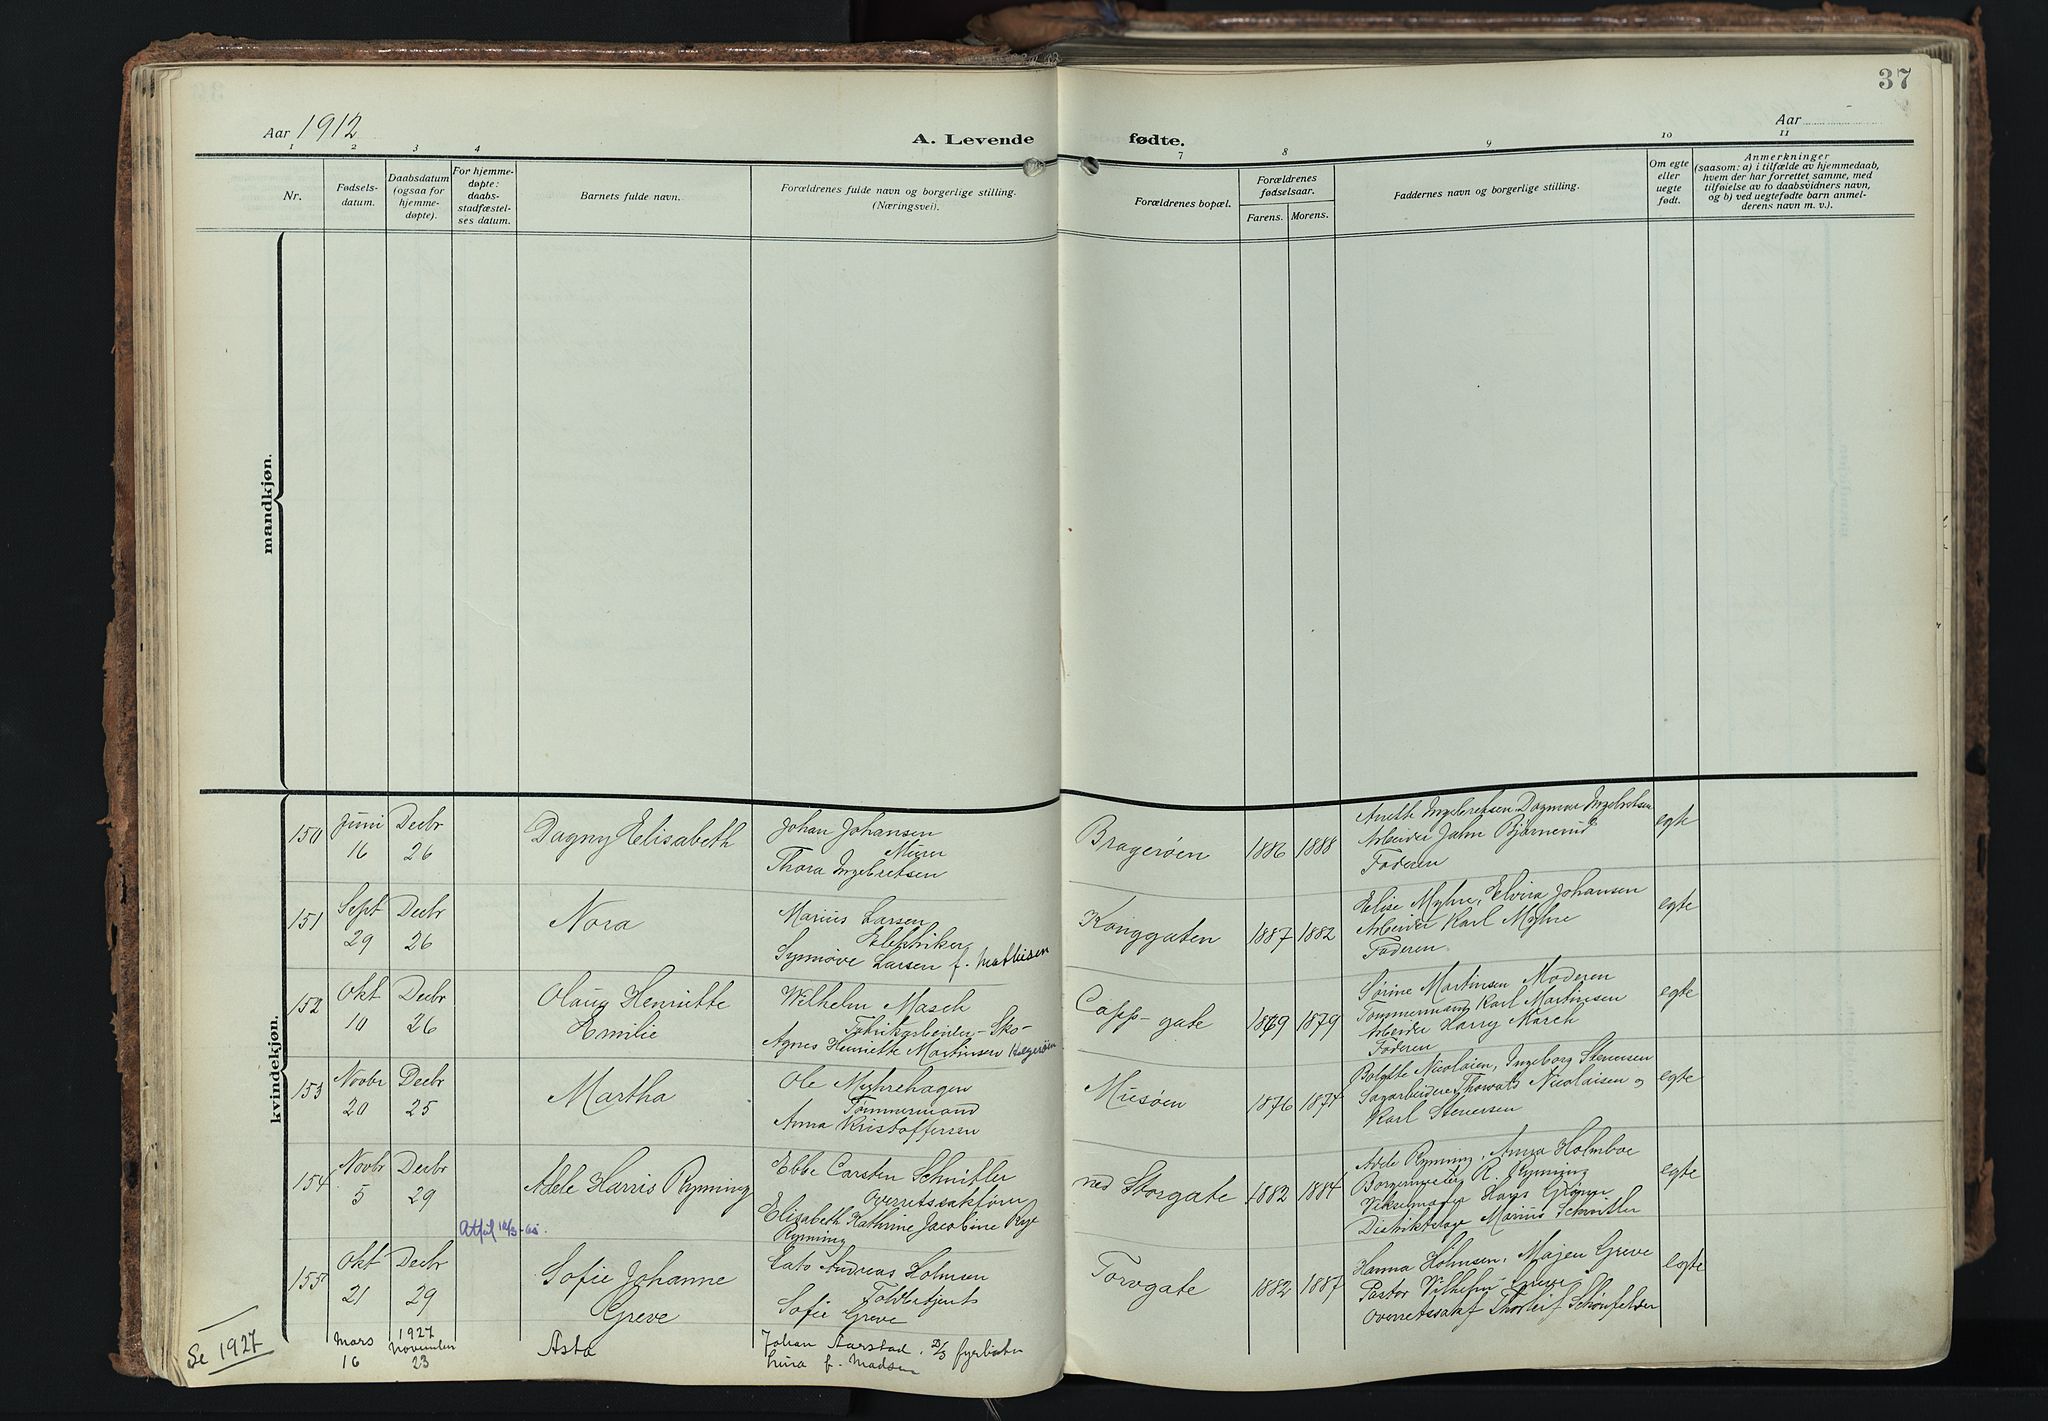 37
Aar 1912
A. Levende fødte.
Aar
1 2 3 4 7 8 9 10 11
Nr.
Fødsels-
datum.
Daabsdatum
(ogsaa for
hjemme-
døpte).
For hjemme-
døpte:
daabs-
stadfæstel-
ses datum.
Barnets fulde navn.
Forældrenes fulde navn og borgerlige stilling.
(Næringsvei).
Forældrenes bopæl.
Forældrenes
fødselsaar.
Farens. Morens.
Faddernes navn og borgerlige stilling.
Om egte
eller
uegte
født.
Anmerkninger
(saasom: a) i tilfælde av hjemmedaab,
hvem der har forrettet samme, med
tilføielse av to daabsvidners navn,
og b) ved uegtefødte barn anmel-
derens navn m. v.).
mandkjøn.
kvindekjøn.
150
Juni
16
Decbr
26
Dagny Elisabeth
Johan Johansen
Murer
Thora Ingebretsen
Bragerøen
1886 1888
Aneth Ingebretsen Dagmar Ingebretsen
Arbeider Jahn Bjørnerud
Faderen
egte
151
Sept
29
Decbr
26
Nora
Marius Larsen
Elektriker
Synnøve Larsen f. Mathisen
Konggaten
1887 1882
Elise Myhre, Elvira Johansen
Arbeider Karl Myhre
Faderen
egte
152
Okt
10
Decbr
26
Olaug Henriette
Emilie
Wilhelm Masch
Fabrikarbeider - Sko-
Agnes Henriette Martinsen
Capp-gate
1879 1879
Sørine Martinsen Moderen
Tømmermand Karl Martinsen
Arbeider Harry March
Faderen
egte
153
Novbr
20
Decbr
25
Martha
Ole Myhrehagen
Tømmermand
Anna Kristoffersen
Musøen
1876 1874
Nicolaisen, Ingeborg Stenersen
Sagarbeidere Thorvald Nicolaisen og
Karl Stenersen
egte
154
Novbr
5
Decbr
29
Adele Harris Rynning
Ebbe Carsten Schnitler
Overretssakfører
Elisabeth Kathrine Jacobine Rye
Rynning
ned Storgate
1882 1884
Adele Rynning, Anna Holmboe
Borgermester R. Rynning
Hans Grønn
Distriktslæge Marius Schnitler
egte
155
Okt
21
Decbr
29
Sofie Johanne
Greve
Cato Andreas Holmsen
Toldbetjent
Sofie Greve
Torvgate
1882 1887
Hanna Holmsen, Majen Greve
Pastor Vilhelm Greve
Overretssakf Thorleif Schønfelder
egte
Se 1927
Mars
16
1927
November
23
Asta
Johan Aarstad, fyrbøter
f. Madsen